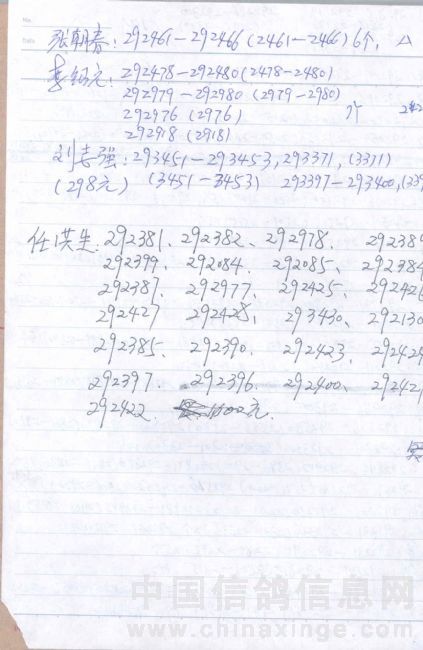 张朝春: 292461-292466 (2461-2466) 6个,
李绍元: 292478-292480 (2478-2480)
292979-292980 (2979-2980)
292976 (2976) 个
292918 (2918)
刘志强: 293451-293453, 293371, (3371)
(298元) (3451-3453) 293397-293400, (339
任洪生: 292381、292382、292978、 29238
292399、292084、292085、292384
292387、292977、292425、292426
292427 292428、293430、292130
292385、292390、292423、29242
292397、292396、292400、29242
292422 元.
中国信鸽信息网
www.chinaxinge.com